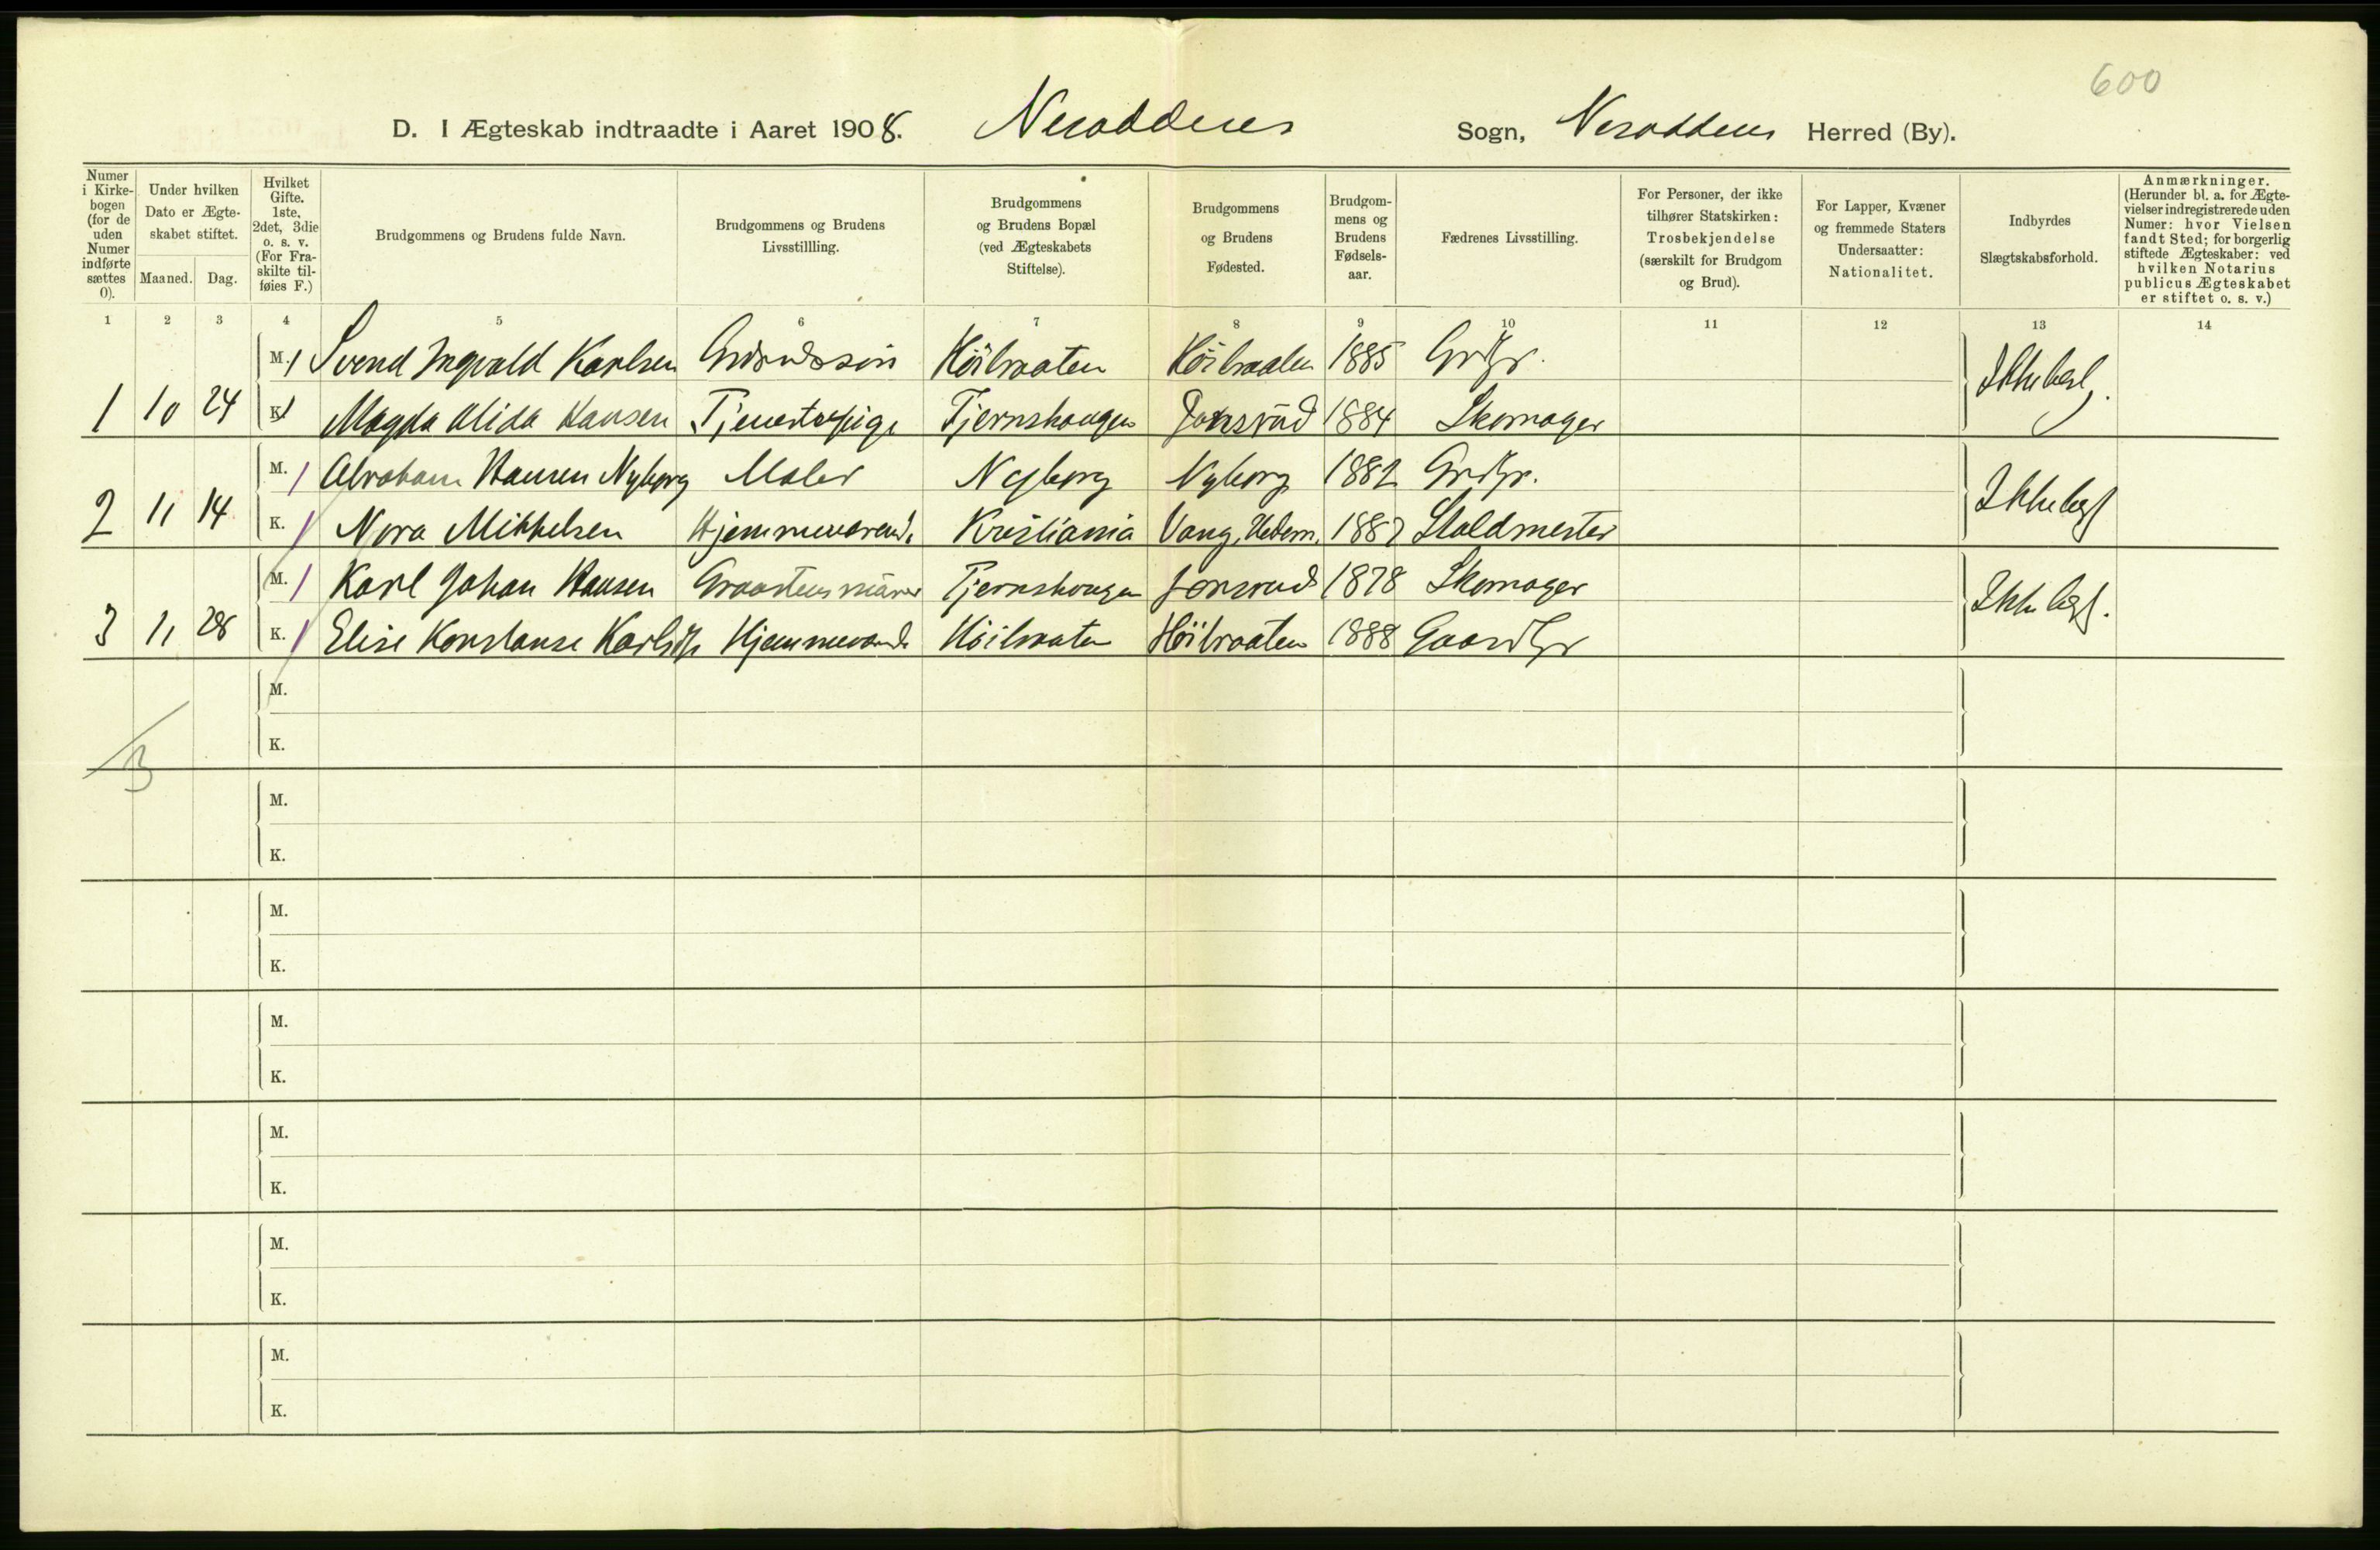 600
D. I Ægteskab indtraadte i Aaret 1908. Nesoddens Sogn, Nesoddens Herred (By).
Numer i Kirkebogen (for de uden Numer indførte sættes 0).
Under hvilken Dato er Ægteskabet stiftet.
Maaned. Dag.
Hvilket Gifte. 1ste, 2det, 3die o. s. v. (For Fraskilte tilføies F.)
Brudgommens og Brudens fulde Navn.
Brudgommens og Brudens Livsstillling.
Brudgommens og Brudens Bopæl (ved Ægteskabets Stiftelse).
Brudgommens og Brudens Fødested.
Brudgommens og Brudens Fødselsaar.
Fædrenes Livsstilling.
For Personer, der ikke tilhører Statskirken: Trosbekjendelse (særskilt for Brudgom og Brud).
For Lapper, Kvæner og fremmede Staters Undersaatter: Nationalitet.
Indbyrdes Slægtskabsforhold.
Anmærkninger. (Herunder bl. a. for Ægtevielser indregistrerede uden Numer: hvor Vielsen fandt Sted; for borgerlig stiftede Ægteskaber: ved hvilken Notarius publicus Ægteskabet er stiftet o. s. v.)
1 2 3 4 5 6 7 8 9 10 11 12 13 14
M. 1 Svend Ingvald Karlsen Høibraaten Høibraaten 1885 Grdbr.
1 10 24 K. 1 Magda Alida Hansen Tjenestepige Tjernshaugen Jonsrud 1884 Skomager
M. 1 Abraham Hansen Nyborg Maler Nyborg Nyborg 1882 Grdbr.
2 11 14 K. 1 Nora Mikkelsen Hjemmeværend. Kristiania Vang, Hedem. 1887 Staldmester
M. 1 Karl Johan Hansen Tjernshaugen Jonsrud 1878 Skomager
3 11 28 K. 1 Elise Konstanse Hjemmeværende Høibraaten Høibraaten 1888 Gaardbr
M.
K.
3
M.
K.
M.
K.
M.
K.
M.
K.
M.
K.
M.
K.